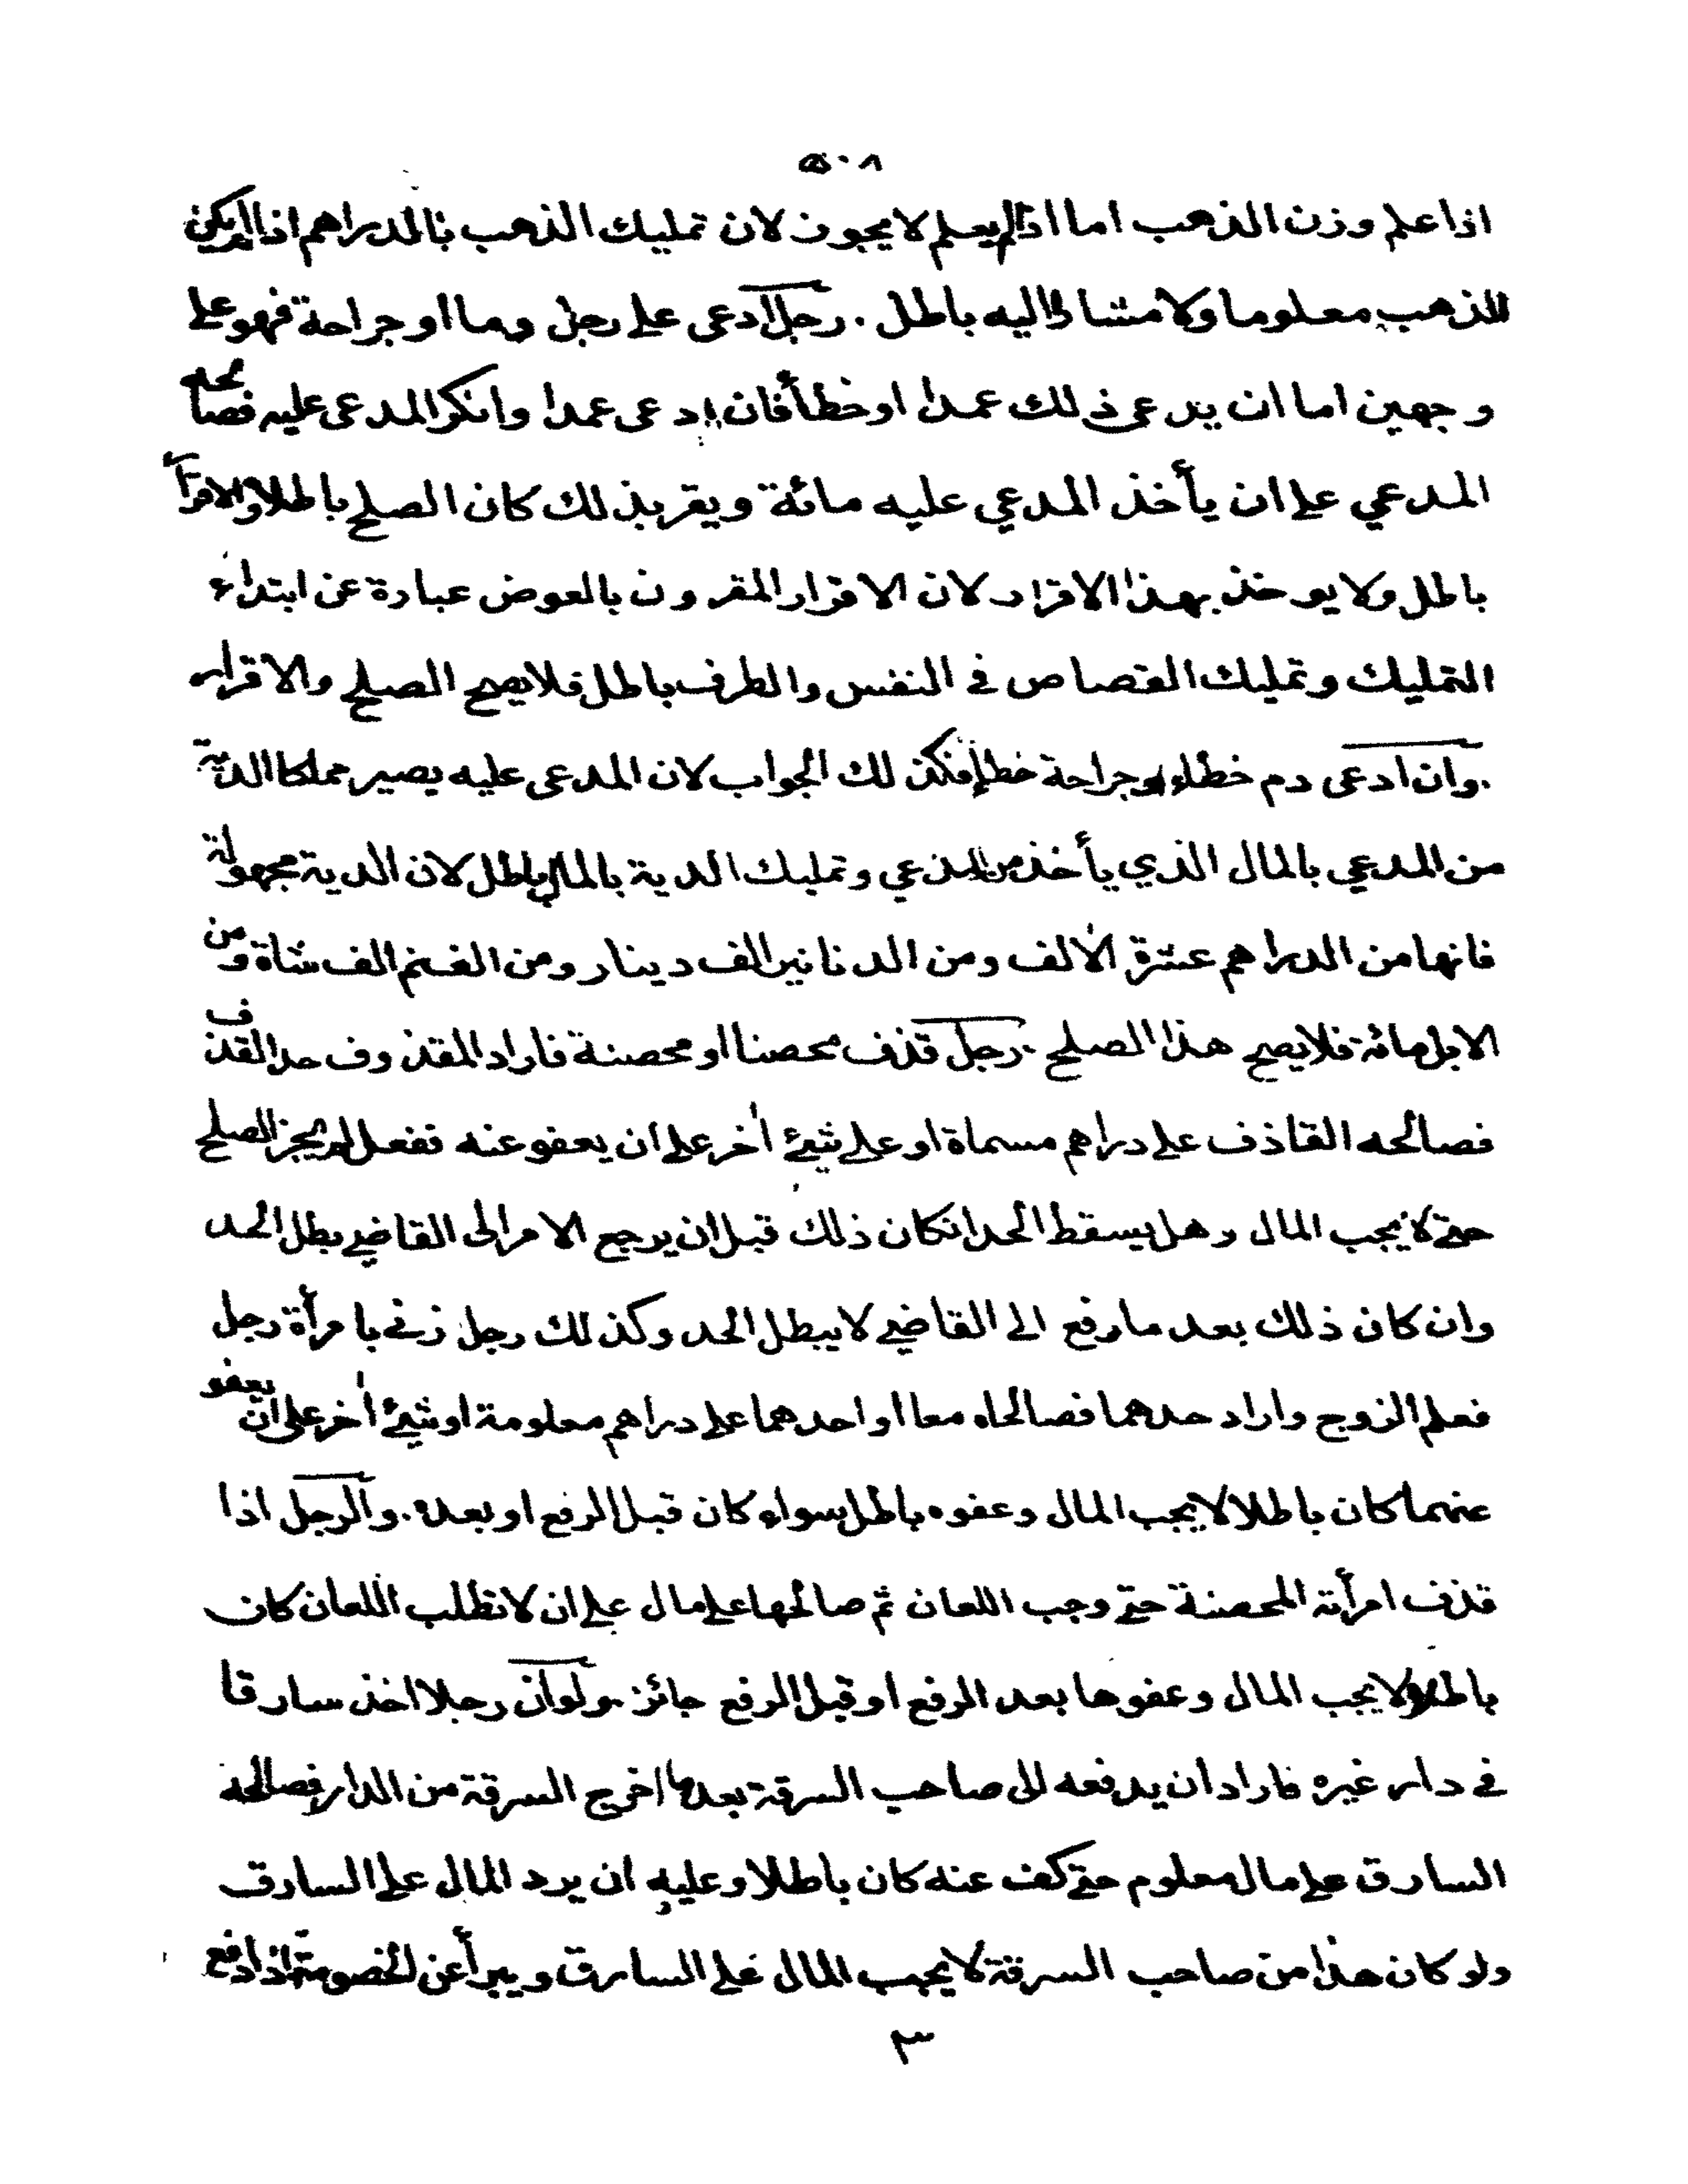 ٥٠٨
اذا علم وزن الذهب اما اذا لم يعلم لا يجوز لان تمليك الذهب بالدراهم اذا لم يكن
الذهب معلوما ولا مشارا اليه باطل . رجل ادعى على رجل دما او جراحة فهو على
وجهين اما ان يدعى ذلك عمدا او خطأ فان ادعى عمدا وانكر المدعى عليه فصالحه
المدعي على ان يأخذ المدعي عليه مائة ويقر بذلك كان الصلح باطلا والاقرار
باطل ولا يوخذ بهذا الاقرار لان الاقرار المقرون بالعوض عبارة عن ابتداء
التمليك وتمليك القصاص في النفس والطرف باطل فلا يصح الصلح والاقرار
. وان ادعى دم خطاء او جراحة خطإ فكذلك الجواب لان المدعى عليه يصير مملكا الدية
من المدعي بالمال الذي يأخذ من المدعي وتمليك الدية بالمال باطل لان الدية مجهولة
فانها من الدراهم عشرة الالف ومن الدنانير الف دينار ومن الغنم الف شاة ومن
الابل مائة فلا يصح هذا الصلح . رجل قذف محصنا او محصنة فاراد المقذوف حد القذف
فصالحه القاذف على دراهم مسماة او على شيئ أخر على ان يعفو عنه ففعل لم يجز الصلح
حتى لا يجب المال وهل يسقط الحد انكان ذلك قبل ان يرجع الامر الى القاضي بطل الحد
وان كان ذلك بعد ما رفع الى القاضي لا يبطل الحد وكذلك رجل زنى بامرأة رجل
فعلم الزوج واراد حدهما فصالحاه معا او احدهما على دراهم معلومة او شيئ أخر على ان يعفو
عنهما كان باطلا لا يجب المال وعفوه باطل سواء كان قبل الرفع او بعده . والرجل اذا
قذف امرأته المحصنة حتى وجب اللعان ثم صالحها على مال على ان لا تطلب اللعان كان
باطلا ولا يجب المال وعفوها بعد الرفع او قبل الرفع جائز . ولو ان رجلا اخذ سارقا
في دار غيره فاراد ان يدفعه الى صاحب السرقة بعد ما اخرج السرقة من الدار فصالحه
السارق على مال معلوم حتى كف عنه كان باطلا وعليه ان يرد المال على السارق
ولو كان هذا من صاحب السرقة لا يجب المال على السارق ويبرأ عن الخصومة اذا دفع
٣